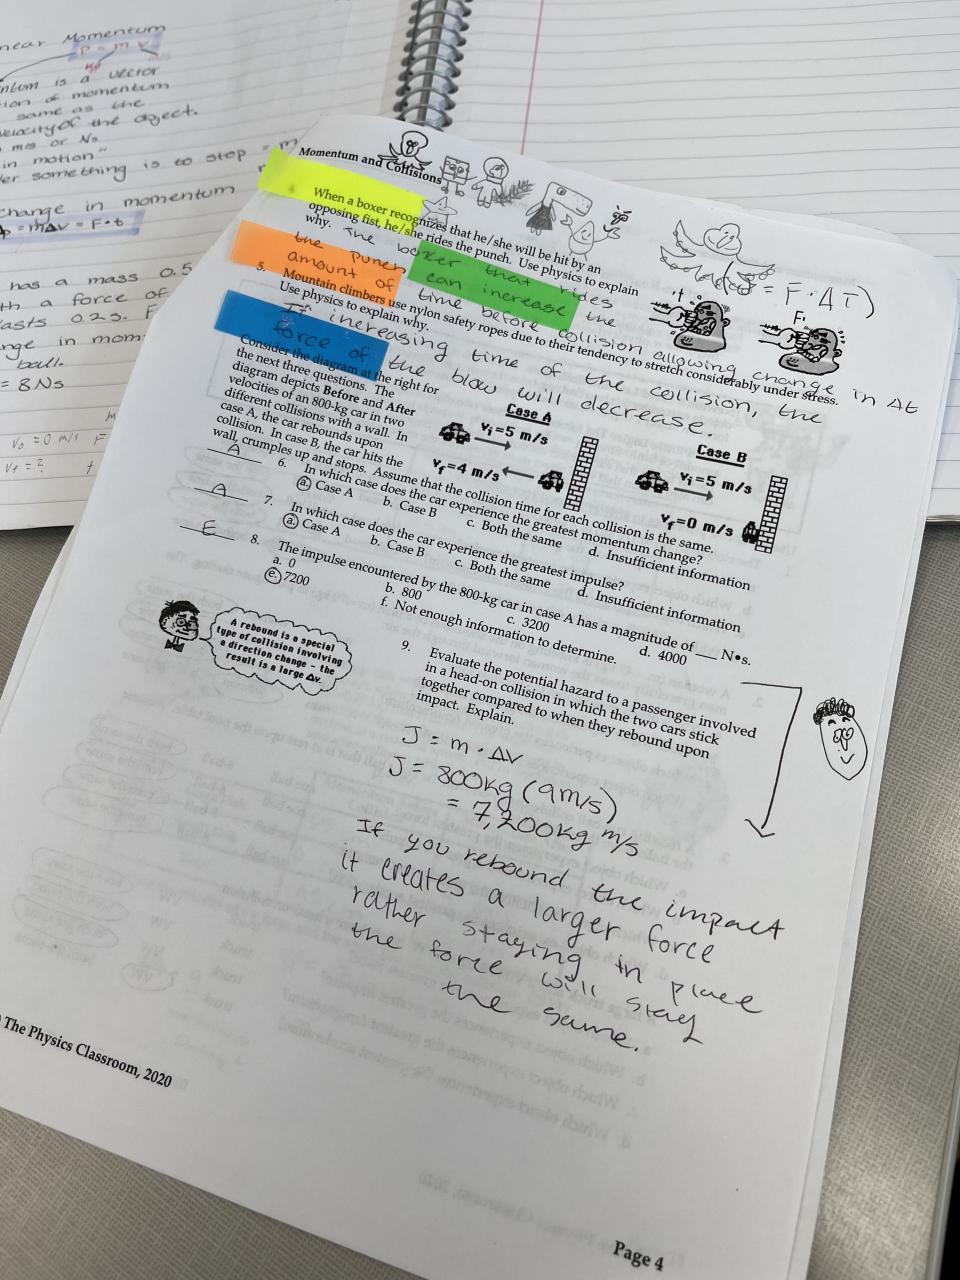 near Momentum
p = m v
kg
ntum is a vector
tion of momentum
same as the
velocity of the object.
m/s or Ns
in motion"
er something is to stop = m
change in momentum
p = mΔv = F·t
has a mass 0.5
th a force of
lasts 0.2s. F
nge in mom
ball.
= 8Ns
v₀ = 0 m/s F
vf = ? t
Momentum and Collisions
When a boxer recognizes that he/she will be hit by an
opposing fist, he/she rides the punch. Use physics to explain
why. The boxer that rides
the punch can increase the
amount of time before collision allowing change in Δt
= F·ΔT)
5. Mountain climbers use nylon safety ropes due to their tendency to stretch considerably under stress.
Use physics to explain why.
If increasing time of the collision, the
force of the blow will decrease.
Consider the diagram at the right for
the next three questions. The
diagram depicts Before and After
velocities of an 800-kg car in two
different collisions with a wall. In
case A, the car rebounds upon
collision. In case B, the car hits the
wall, crumples up and stops. Assume that the collision time for each collision is the same.
Case A
vi=5 m/s
vf=4 m/s
Case B
vi=5 m/s
vf=0 m/s
A 6. In which case does the car experience the greatest momentum change?
a. Case A b. Case B c. Both the same d. Insufficient information
A 7. In which case does the car experience the greatest impulse?
a. Case A b. Case B c. Both the same d. Insufficient information
E 8. The impulse encountered by the 800-kg car in case A has a magnitude of ___ N•s.
a. 0 b. 800 c. 3200 d. 4000
e. 7200 f. Not enough information to determine.
A rebound is a special
type of collision involving
a direction change - the
result is a large Δv.
9. Evaluate the potential hazard to a passenger involved
in a head-on collision in which the two cars stick
together compared to when they rebound upon
impact. Explain.
J = m · Δv
J = 800kg (9m/s)
= 7,200kg m/s
If you rebound the impact
it creates a larger force
rather staying in place
the force will stay
the same.
The Physics Classroom, 2020
Page 4